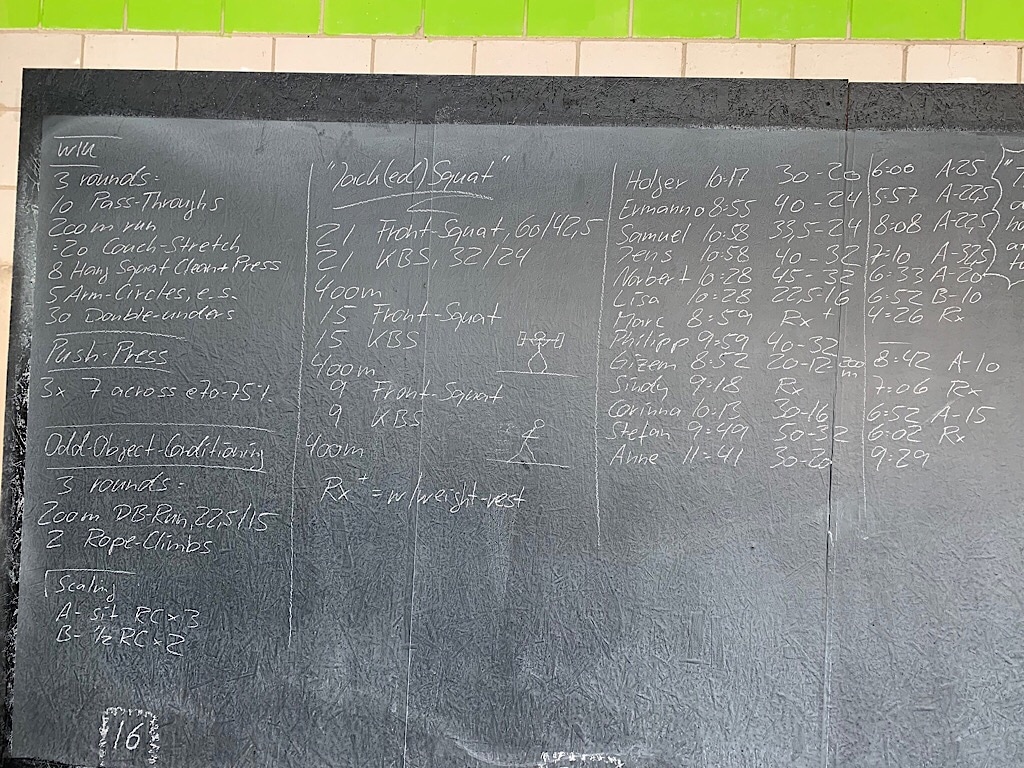 W/U
3 rounds:
10 Pass-Throughs
200m run
:20 Couch-Stretch
8 Hang Squat Clean + Press
5 Arm-Circles, e.s.
30 Double-unders
Push-Press
3x 7 across @70-75%
Odd-Object-Conditioning
3 rounds:
200m DB-Run, 22,5/15
2 Rope-Climbs
Scaling
A- sit RC x 3
B- 1/2 RC x 2
16
"Jack(ed) Squat"
21 Front-Squat, 60/42,5
21 KBS, 32/24
400m
15 Front-Squat
15 KBS
400m
9 Front-Squat
9 KBS
400m
Rx+ = w/weight-vest
Holger 10:17 30-20 6:00 A-25
Ermanno 8:55 40-24 5:57 A-22,5
Samuel 10:58 33,5-24 8:08 A-22,5
Jens 10:58 40-32 7:10 A-32,5
Norbert 10:28 45-32 6:33 A-20
Lisa 10:28 22,5-16 6:52 B-10
Marc 8:59 Rx+ 4:26 Rx
Philipp 9:59 40-32 —
Gizem 8:52 20-12 200m 8:42 A-10
Sindy 9:18 Rx 7:06 Rx
Corinna 10:13 30-16 6:52 A-15
Stefan 9:49 50-32 6:02 Rx
Anne 11:41 30-20 9:29